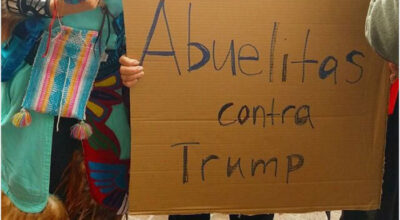 Abuelitas
contra
Trump